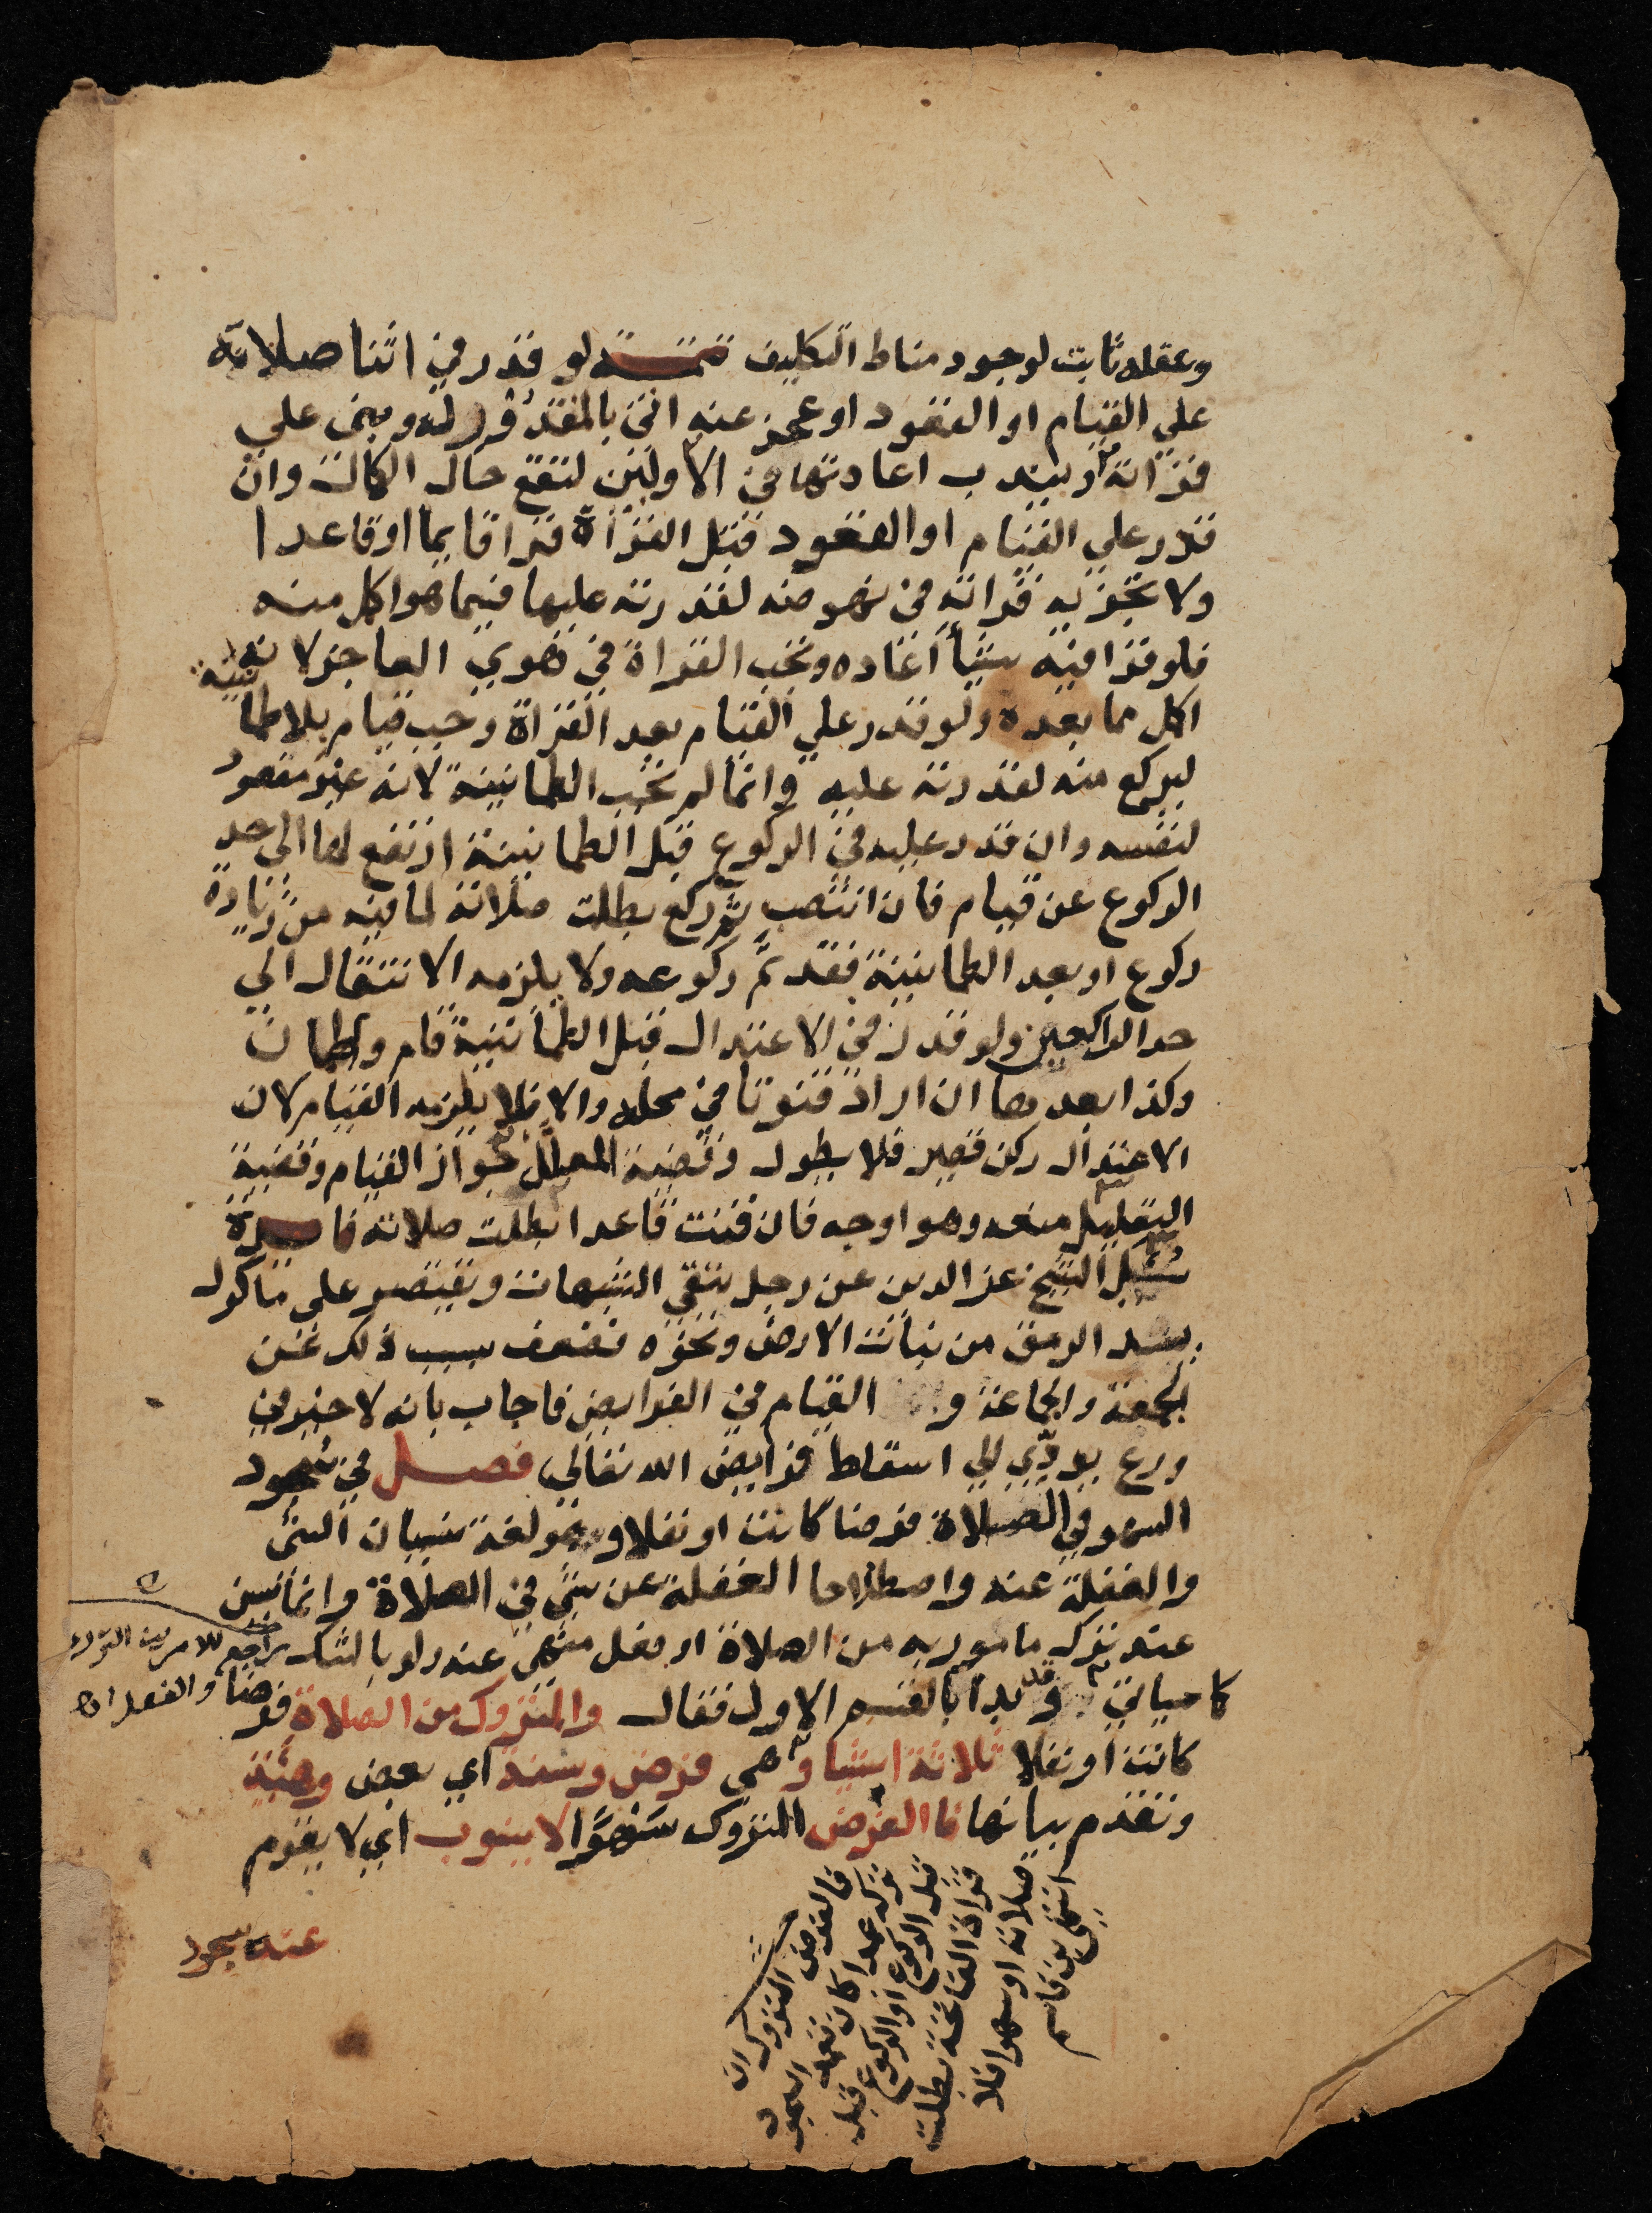 وعقله ثابت لوجود مناط التكليف تتمـــة لو قدر في اثنا صلاته
علي القيام او القعود او عجز عنه اتي بالمقدور له وبني علي
قراته ويندب اعادتها في الاوليين لتقع حال الكمال وان
قدر علي القيام او القعود قبل القراة قرا قايما او قاعدا
ولا تجزيه قراته في نهوضه لقدرته عليها فيما هو اكمل منه
فلو قرا فيه شيأ اعاده وتجب القراة في هوي العاجز لانه
اكمل مما بعده ولو قدر علي القيام بعد القراة وجب قيام بلا طمأنينة
ليركع منه لقدرته عليه وانما لم تجب الطمانينة لانه غير مقصود
لنفسه وان قدر عليه في الركوع قبل الطمانينة ارتفع لها الي حد
الركوع عن قيام فان انتصب ثم ركع بطلت صلاته لما فيه من زيادة
ركوع او بعد الطمانينة فقد تم ركوعه ولا يلزمه الانتقال الي
حد الراكعين ولو قدر في الاعتدال قبل الطمانينة قام واطمان
وكذا بعدها ان اراد قنوتا في محله والا فلا يلزمه القيام لان
الاعتدال ركن قصير فلا يطول وقضية المعلل جواز القيام وقضية
التعليل منعه وهو اوجه فان قنت قاعدا بطلت صلاته فايـــدة
سئل الشيخ عز الدين عن رجل يتقي الشبهات ويقتصر علي ماكول
يسد الرمق من نبات الارض ونحوه فضعف بسبب ذلك عن
الجمعة والجماعة و القيام في الفرايض فاجاب بانه لا خير في
ورع يودّي الي اسقاط فرايض الله تعالي فصـــل في سجود
السهو في الصلاة فرضا كانت او نفلا وهو لغة نسيان الشئ
والغفلة عنه واصطلاحا الغفلة عن شئ في الصلاة وانما يسن
عند ترك مامور به من الصلاة او فعل منهي عنه ولو بالشك
راجع للامرين الترك
والفعل اه
كما سياتي وقد بدا بالقسم الاول فقال والمتروك من الصلاة فرضا
كانت او نفلا ثلاثة اشيا وهي فرض وسنة اي بعض وهيئة
وتقدم بيانها فالفرض المتروك سَهْوًا لا ينوب اي لا يقوم
عنه سجود
فالفرض المتروك ان
تركه عمدا كان تعمد السجود
قبل الركوع او الركوع قبل
قراة الفاتحة بطلت
صلاته او سهوا فلا
انتهى بن قاسم